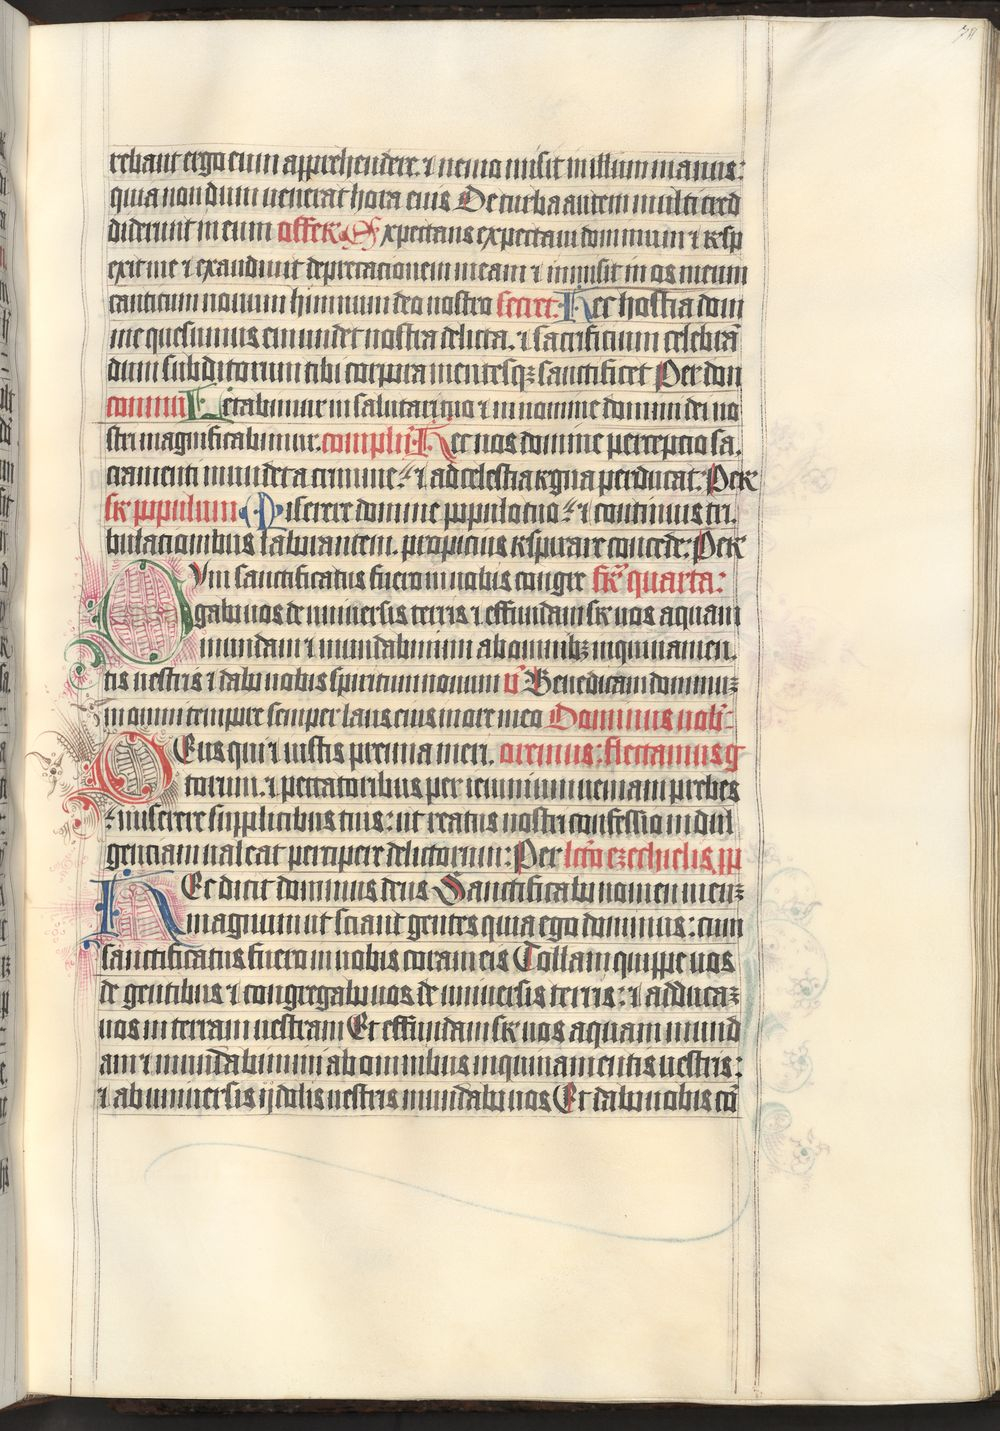 78
rebant ergo eum apprehendere. ⁊ nemo misit in illum manus:
quia nondum uenerat hora eius De turba autem multi cred
diderunt in eum offer̄ Expectans expectaui dominum ⁊ resp
exit me ⁊ exaudiuit deprecacionem meam ⁊ inmisit in os meum
canticum nouum himnum deo nostro secret. Hec hostia dom
ine quesumus emundet nostra delicta. ⁊ sacrificium celebrā
dum subditorum tibi corpora mentesqꝫ sanctificet Per dom
commu Letabimur in salutari tuo ⁊ in nomine domini dei no
stri magnificabimur. complē. Hec nos domine perceptio sa.
cramenti mundet a crimine: ⁊ ad celestia regna perducat. Per
sr̄ populum Miserere domine populo tuo: ⁊ continuis tri.
bulacionibus laborantem. propicius respirare concede: Per
Cum sanctificatus fuero in uobis congre fer̄ quarta:
gabo uos de uniuersis terris ⁊ effundam sr̄ uos aquam
mundam ⁊ mundabimini ab omnibꝫ inquinamen.
tis uestris ⁊ dabo uobis spiritum nouum v̄ Benedicam dominuꝫ
in omni tempore semper laus eius in ore meo Dominus uob̄
Deus qui ⁊ iustis premia meri. oremus: flectamus g
torum. ⁊ peccatoribus per ieiunium ueniam prebes
miserere supplicibus tuis: ut reatus nostri confessio indul
genciam ualeat percipere delictorum: Per lcc̄o ezechielis pp
Hec dicit dominus deus Sanctificabo nomen meuꝫ
magnum ut sciant gentes quia ego dominus: cum
sanctificatus fuero in uobis coram eis Tollam quippe uos
de gentibus ⁊ congregabo uos de uniuersis terris: ⁊ adducaꝫ
uos in terram uestram Et effundam sr̄ uos aquam mund
am ⁊ mundabimini ab omnibus inquinamentis uestris:
⁊ ab uniuersis ijdolis uestris mundabo uos Et dabo uobis co᷑